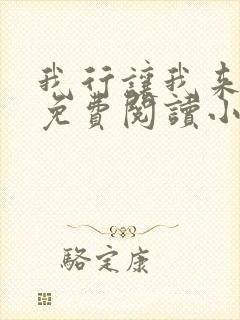 我行讓我來
免費閱讀小
駱定康